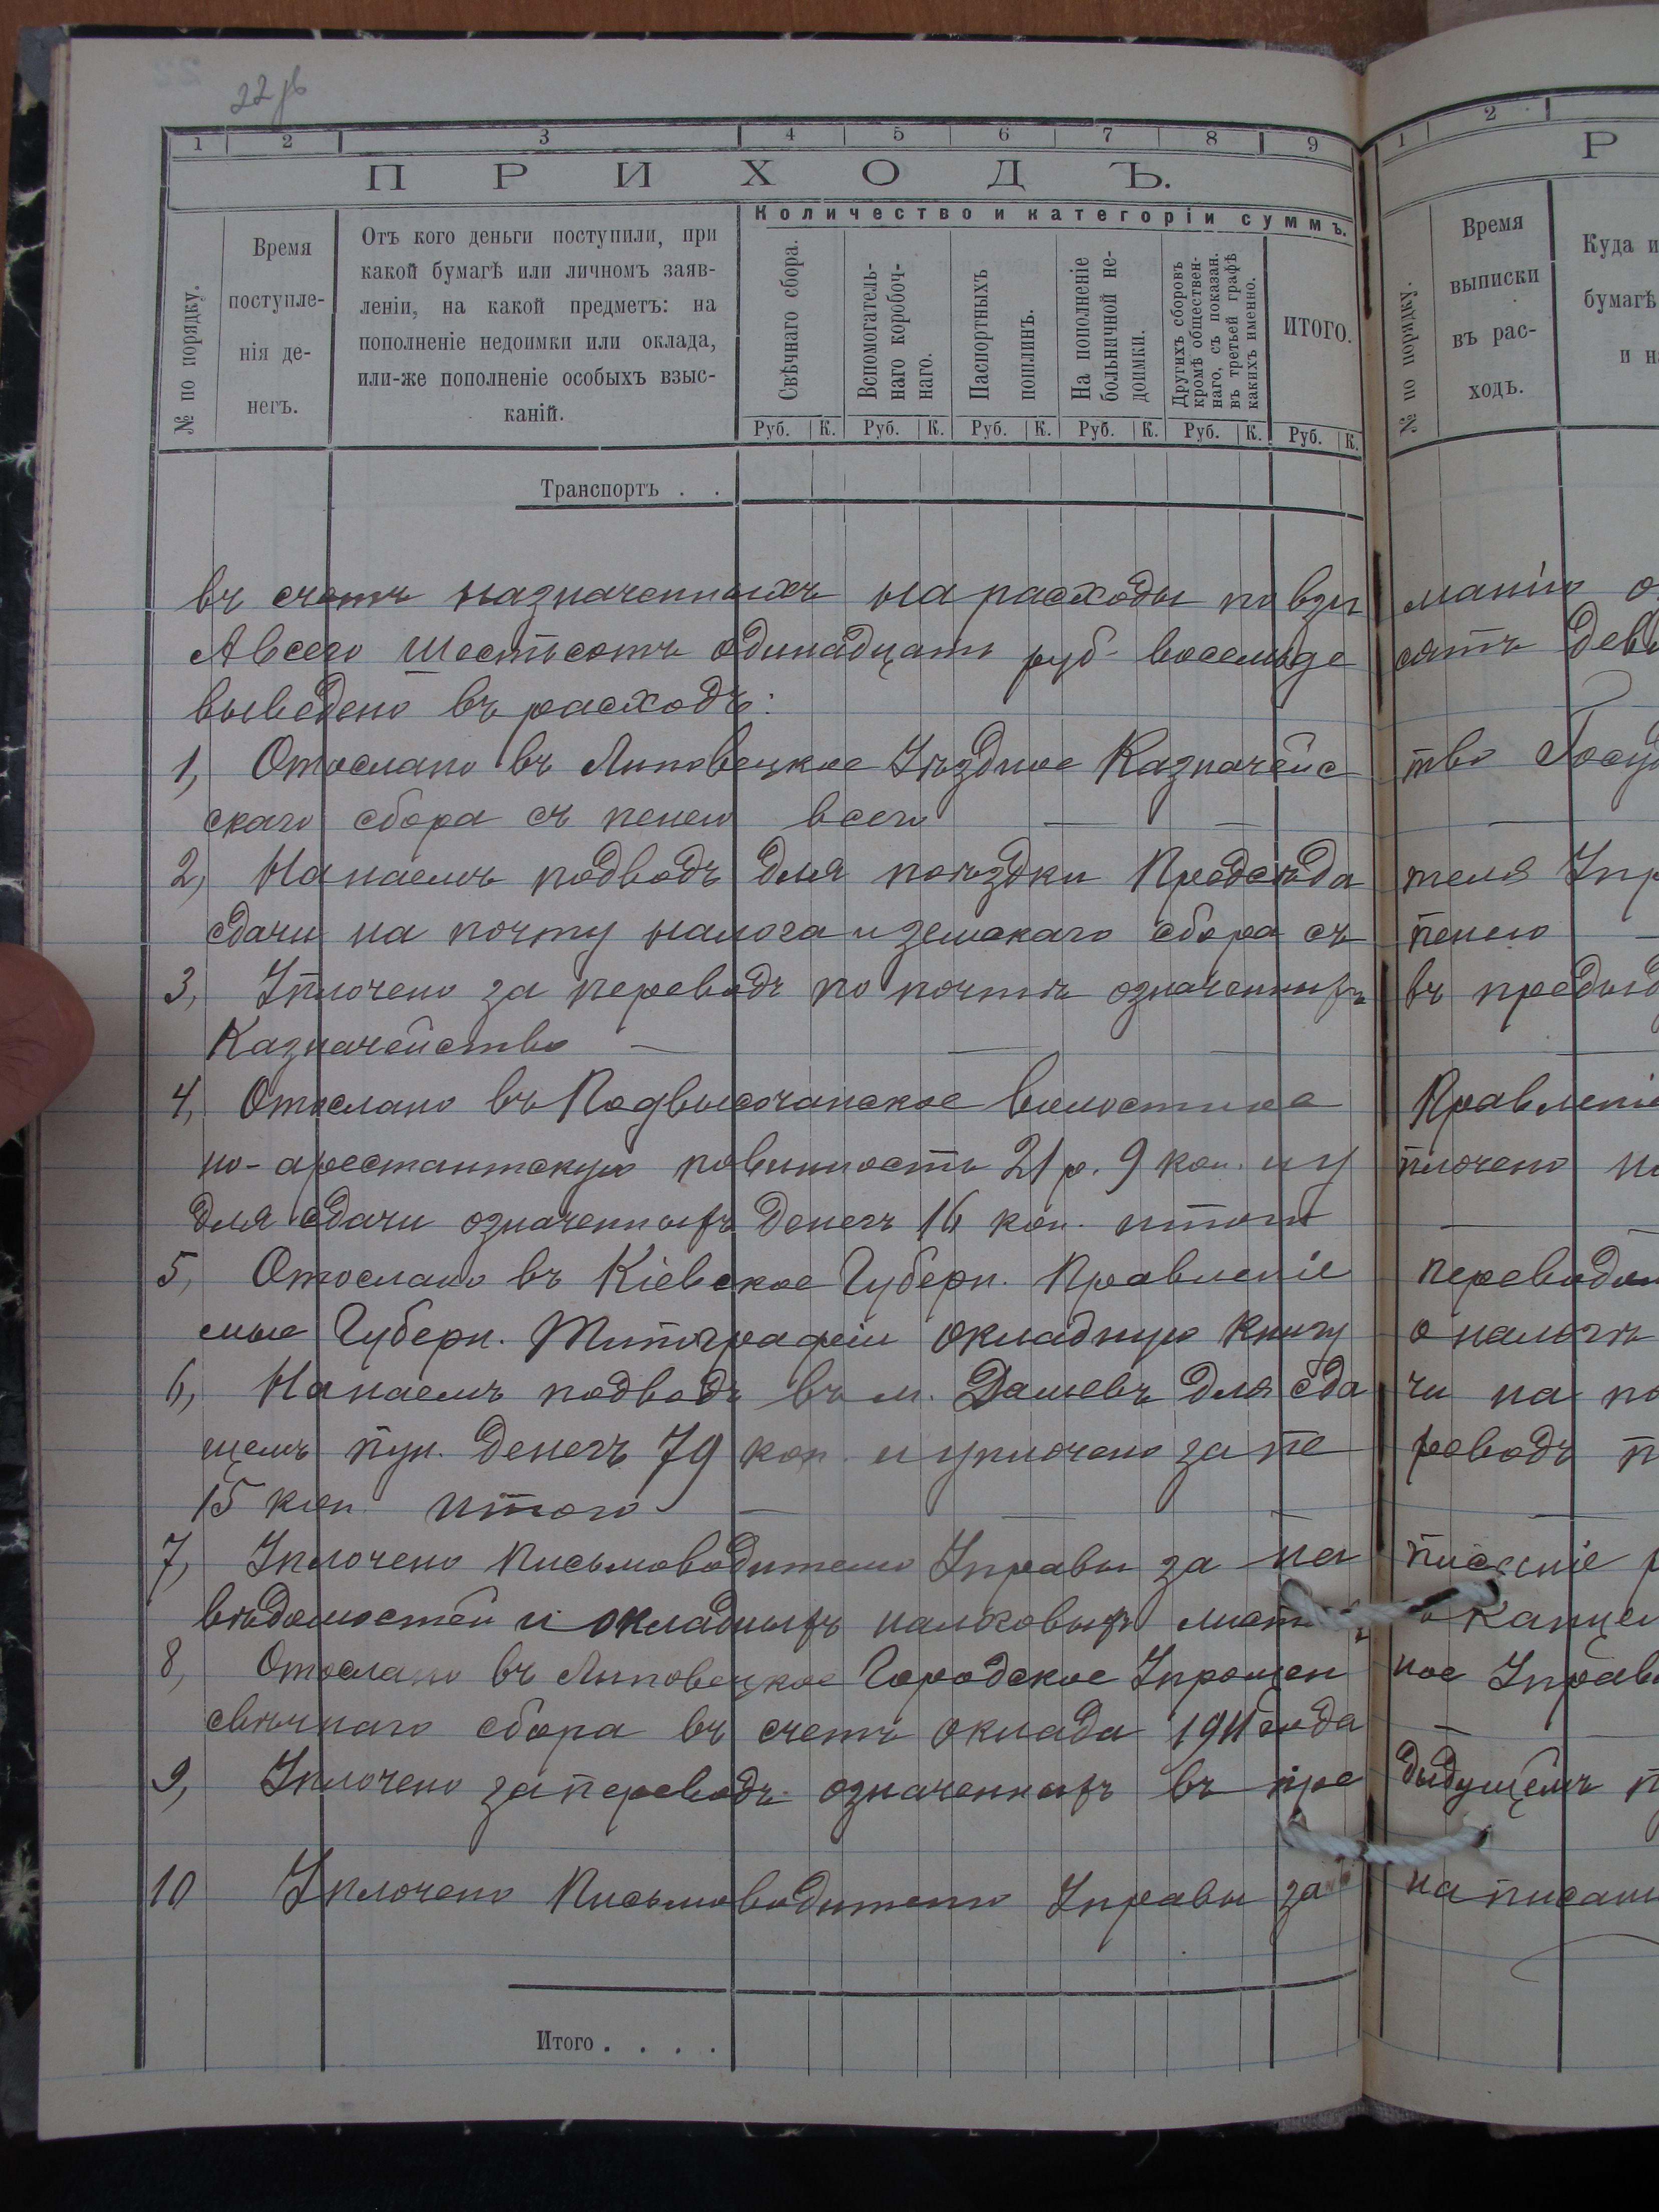 22 зв
1 2 3 4 5 6 7 8 9
ПРИХОДЪ.
Количество и категоріи суммъ.
№ по порядку.
Время
поступле-
нія де-
негъ.
Отъ кого деньги поступили, при
какой бумагѣ или личномъ заяв-
леніи, на какой предметъ: на
пополненіе недоимки или оклада,
или-же пополненіе особыхъ взыс-
каній.
Свѣчнаго сбора.
Вспомогатель-
наго коробоч-
наго.
Паспортныхъ
пошлинъ.
На пополненіе
больничной не-
доимки.
Другихъ сборовъ
кромѣ обществен-
наго, съ показан.
въ третьей графѣ
какихъ именно.
ИТОГО.
Руб. К. Руб. К. Руб. К. Руб. К. Руб. К. Руб. К.
Транспортъ . .
въ счетъ назначенныхъ на расходы по взи
А всего шестьсотъ одинадцать руб. восемьде
выведено въ расходъ:
1, Отослано въ Липовецкое Уѣздное Казначейс
скаго сбора съ пенею всего — —
2, Нанаемъ подводъ для поѣздки Предсѣда
сдачи на почту налога и земскаго сбора съ
3, Уплочено за переводъ по почтѣ означенныхъ
Казначейство — — —
4, Отослано въ Подвысочанское волостное
но-арестантскую повинность 21 р. 9 коп. и у
для сдачи означенныхъ денегъ 16 коп. итого
5, Отослано въ Кіевское Губерн. Правленіе
мые Губерн. Типографіи окладную книгу
6, Нанаемъ подводъ въ м. Дашевъ для сда
щемъ пун. денегъ 79 коп. и уплочено за пе
15 коп. итого — — —
7, Уплочено Письмоводителю Управы за на
вѣдомостей и окладныхъ налоговыхъ
8, Отослано въ Липовецкое Городское Упрощен
свѣчнаго сбора въ счетъ оклада 1911 года
9, Уплочено за переводъ означенныхъ въ пре
10 Уплочено Письмоводителю Управы за
Итого . . . .
1 2
Р
№ по порядку.
Время
выписки
въ рас-
ходъ.
Куда и
бумагѣ
и н
манію о
сятъ девя
тво Госуд
теля Упр
пенею —
въ предыд
—
Правленіе
плочено
— —
переводом
о налогѣ
чи на по
реводъ п
—
писаніе р
Канцел
ное Управ
— —
дыдущемъ п
написані